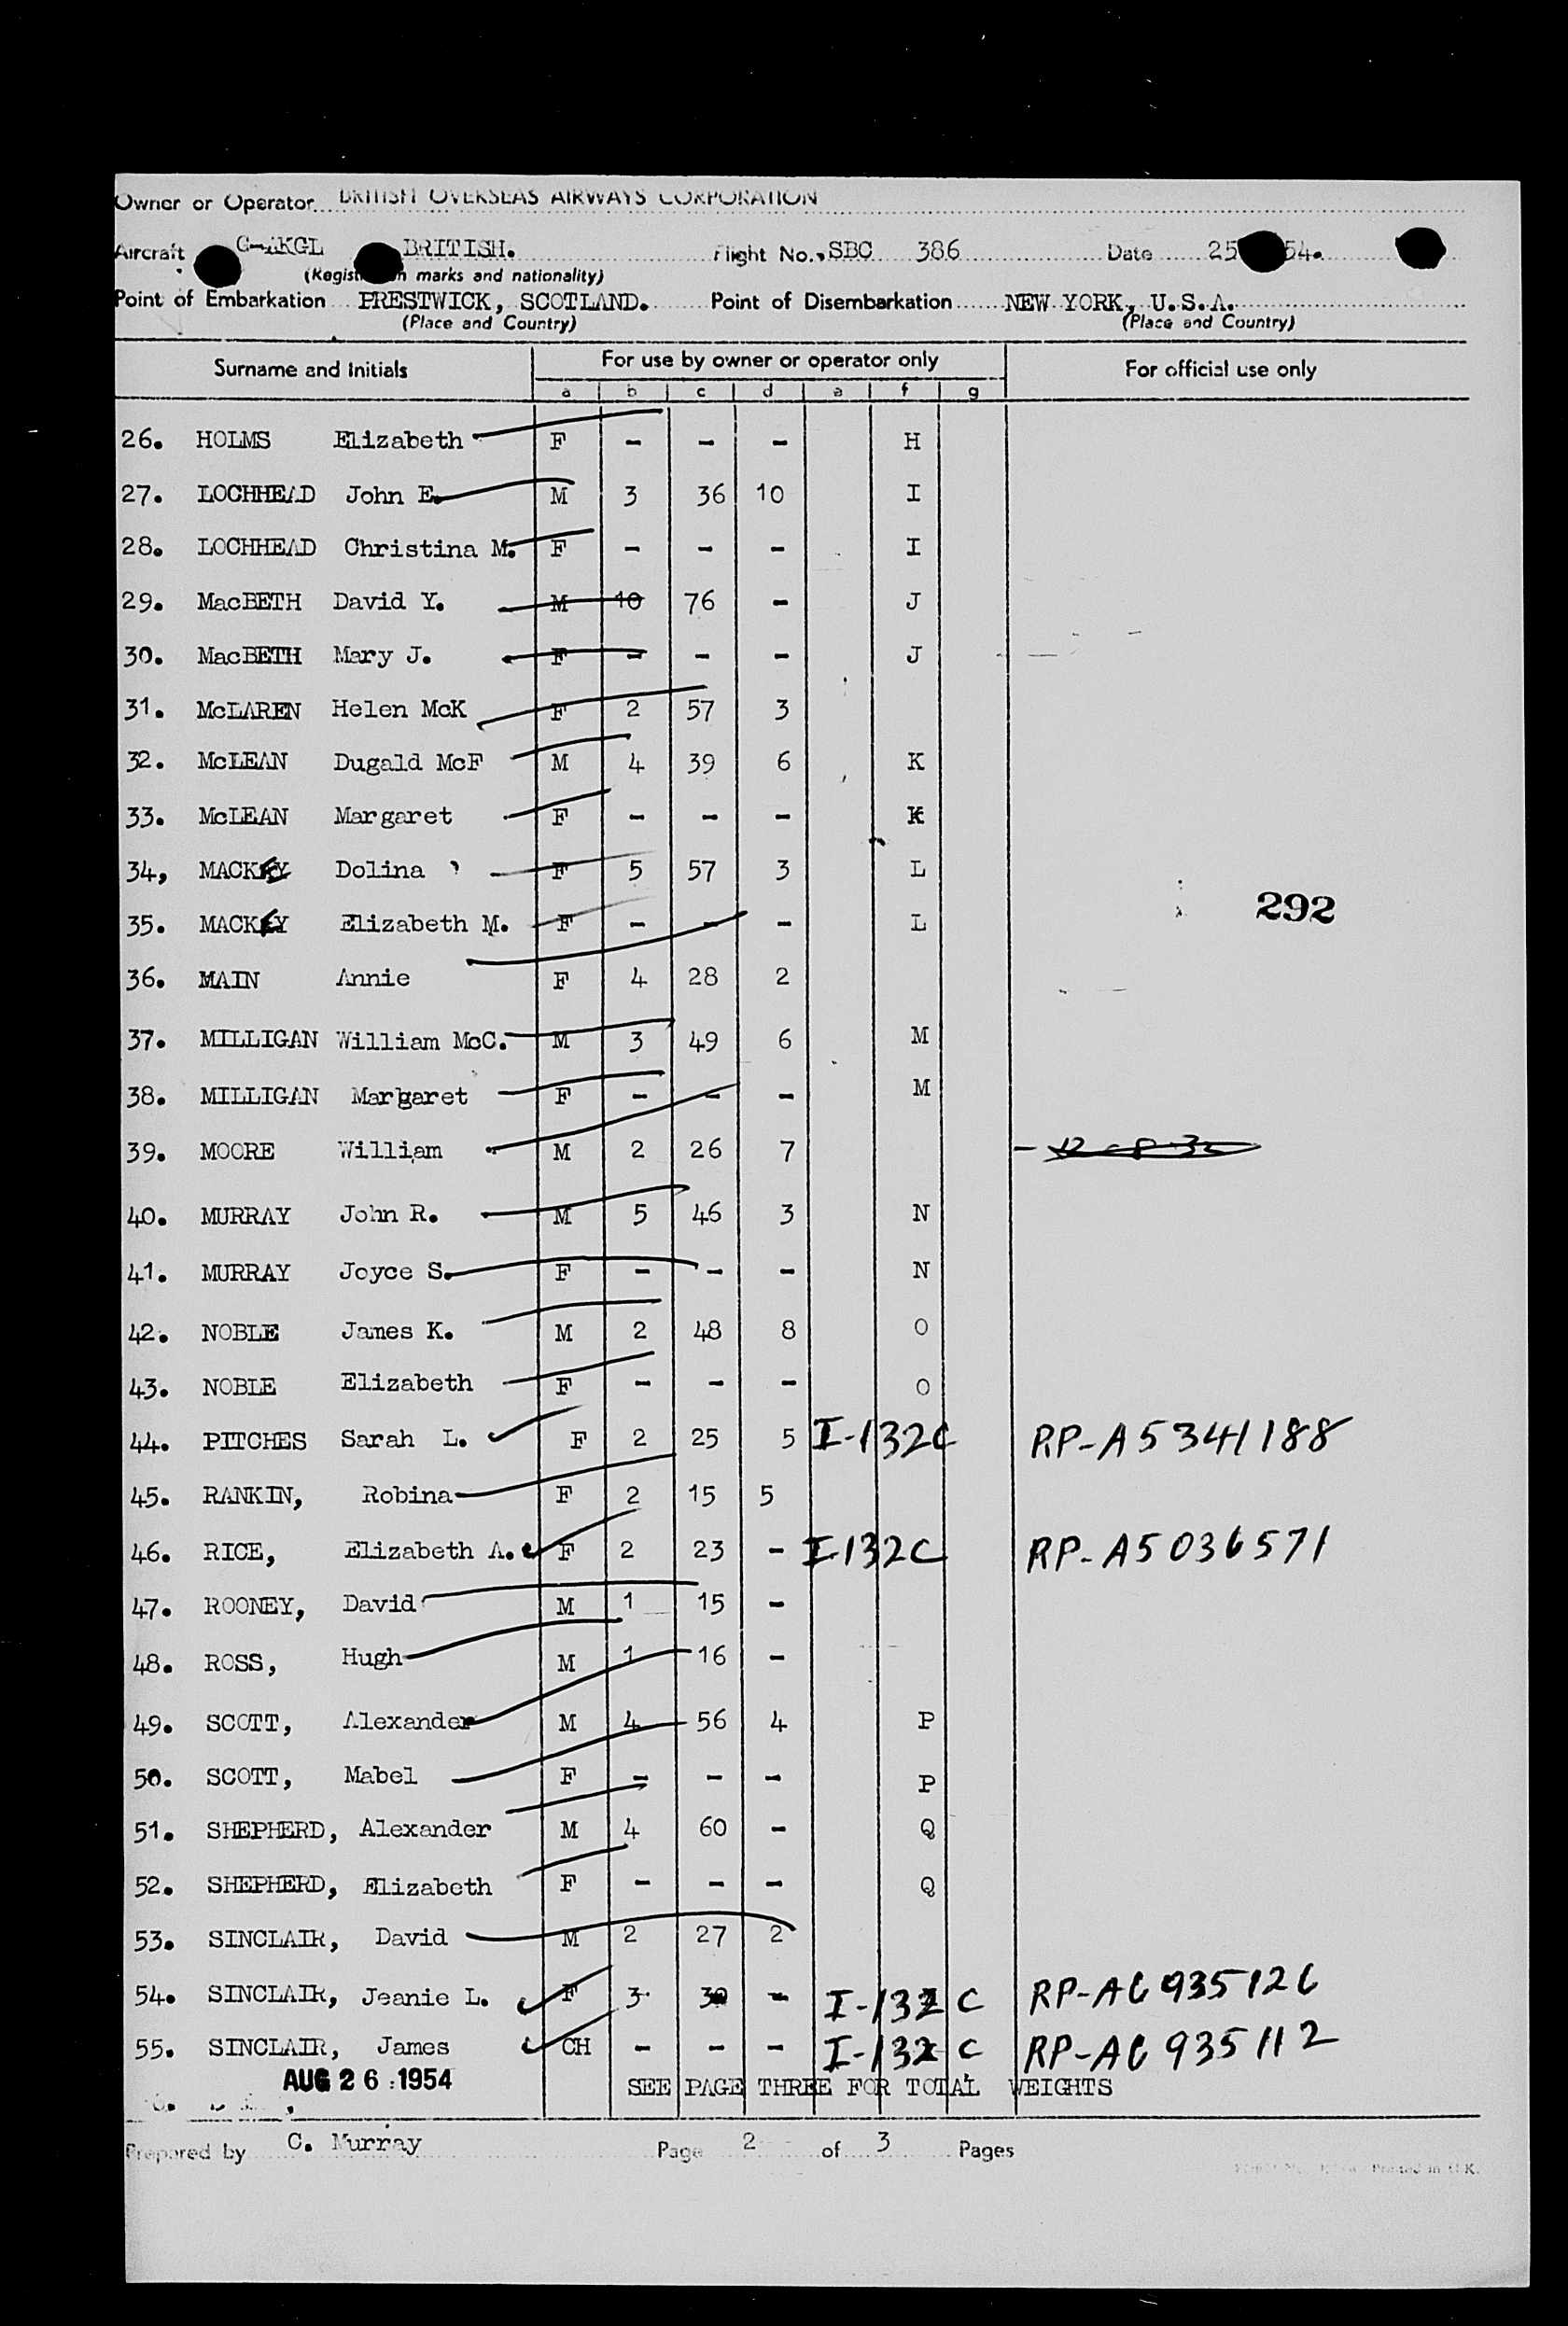 Owner or Operator BRITISH OVERSEAS AIRWAYS CORPORATION
Aircraft G-AKGL BRITISH. Flight No. SBC 386 Date 25 54.
(Regist n marks and nationality)
Point of Embarkation PRESTWICK, SCOTLAND. Point of Disembarkation NEW YORK, U.S.A.
(Place and Country) (Place and Country)
Surname and Initials For use by owner or operator only For official use only
a b c d e f g
26. HOLMS Elizabeth F - - - H
27. LOCHHEAD John E. M 3 36 10 I
28. LOCHHEAD Christina M. F - - - I
29. MacBETH David Y. M 10 76 - J
30. MacBETH Mary J. F - - - J
31. McLAREN Helen McK F 2 57 3
32. McLEAN Dugald McF M 4 39 6 K
33. McLEAN Margaret F - - - K
34, MACKEY Dolina F 5 57 3 L
292
35. MACKEY Elizabeth M. F - - - L
36. MAIN Annie F 4 28 2
37. MILLIGAN William McC. M 3 49 6 M
38. MILLIGAN Margaret F - - - M
39. MOORE William M 2 26 7
40. MURRAY John R. M 5 46 3 N
41. MURRAY Joyce S. F - - - N
42. NOBLE James K. M 2 48 8 O
43. NOBLE Elizabeth F - - - O
44. PITCHES Sarah L. F 2 25 5 I-132C RP-A5341188
45. RANKIN, Robina F 2 15 5
46. RICE, Elizabeth A. F 2 23 - I-132C RP-A5036571
47. ROONEY, David M 1 15 -
48. ROSS, Hugh M 1 16 -
49. SCOTT, Alexander M 4 56 4 P
50. SCOTT, Mabel F - - - P
51. SHEPHERD, Alexander M 4 60 - Q
52. SHEPHERD, Elizabeth F - - - Q
53. SINCLAIR, David M 2 27 2
54. SINCLAIR, Jeanie L. F 3 30 - I-132C RP-A6935126
55. SINCLAIR, James CH - - - I-132C RP-A6935112
AUG 26 1954
SEE PAGE THREE FOR TOTAL WEIGHTS
Prepared by C. Murray Page 2 of 3 Pages
Printed in U.K.